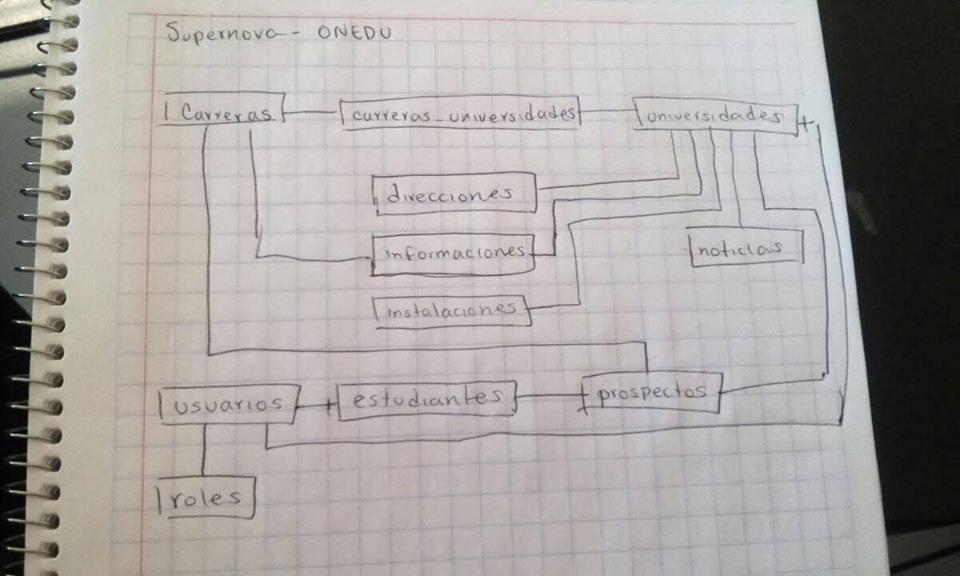 Supernova - ONEDU
Carreras
carreras_universidades
universidades
direcciones
informaciones
noticias
instalaciones
usuarios
estudiantes
prospectos
roles